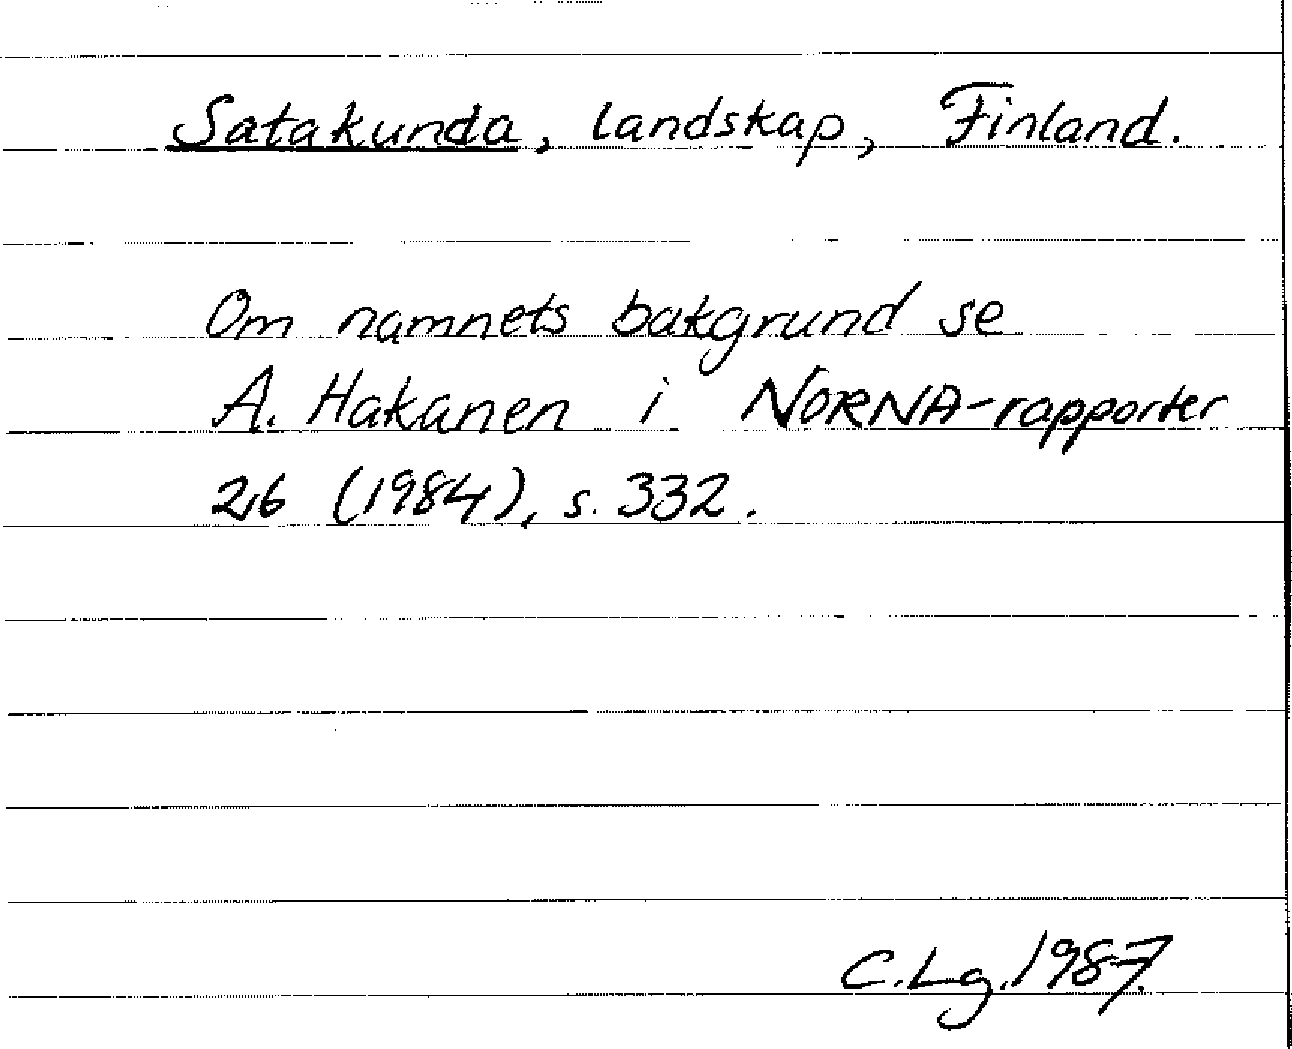 Satakunda, landskap, Finland.
Om namnets bakgrund se
A. Hakanen i NORNA-rapporter
26 (1984), s. 332.
C.Lg.1987.